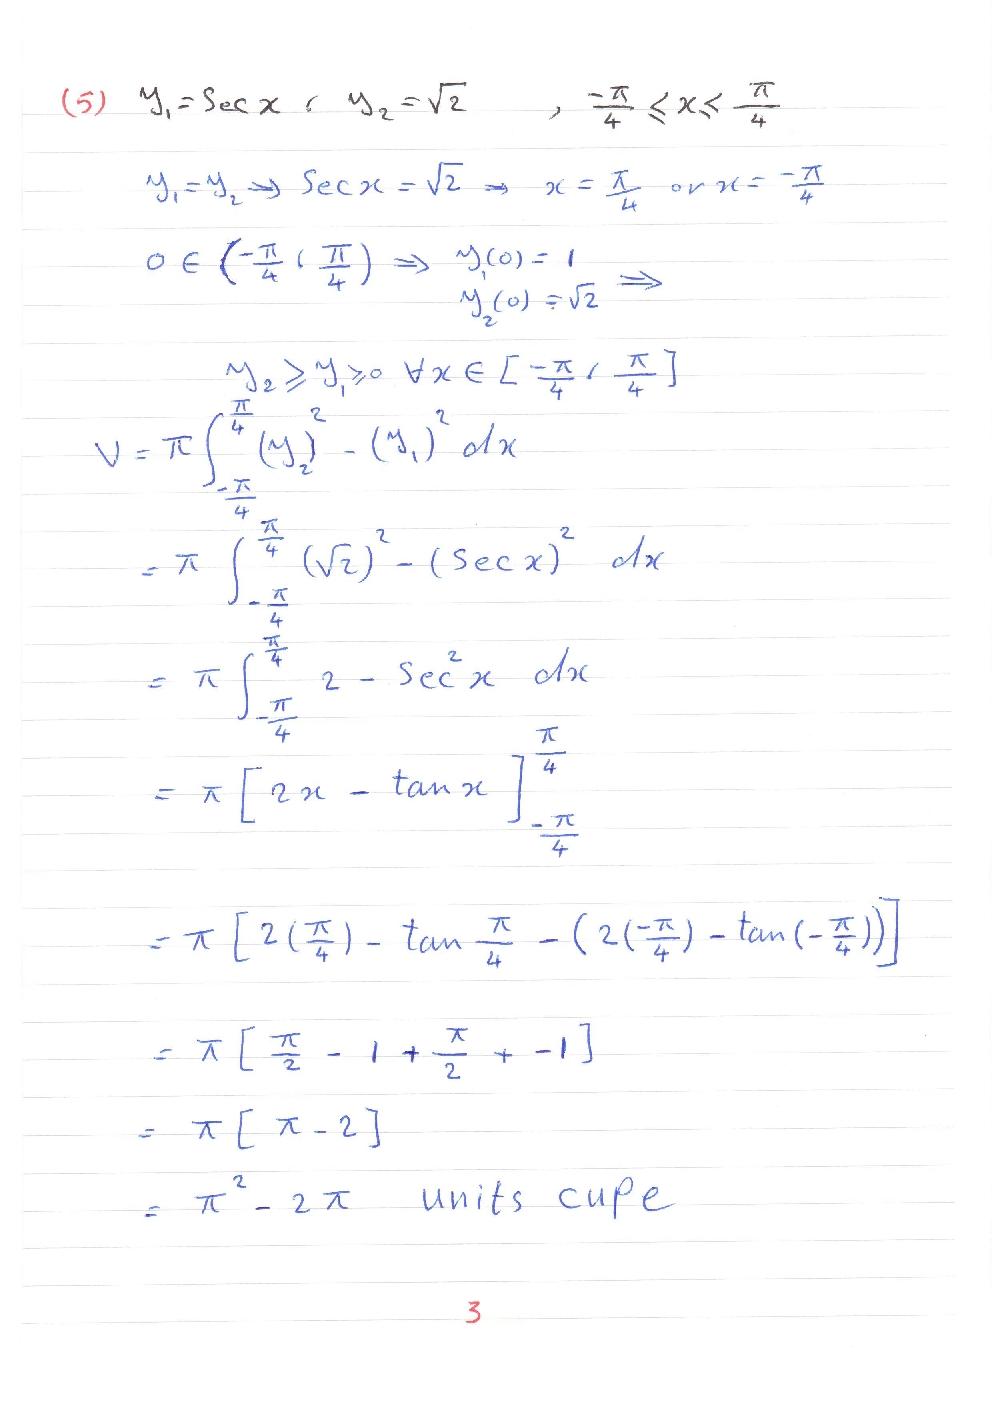 (5) y₁ = Sec x , y₂ = √2 , -π/4 ⩽ x ⩽ π/4
y₁ = y₂ ⇒ Sec x = √2 ⇒ x = π/4 or x = -π/4
0 ∈ (-π/4 , π/4) ⇒ y₁(0) = 1
y₂(0) = √2 ⇒
y₂ ⩾ y₁ ⩾ 0 ∀ x ∈ [-π/4 , π/4]
V = π ∫_{-π/4}^{π/4} (y₂)² - (y₁)² dx
= π ∫_{-π/4}^{π/4} (√2)² - (Sec x)² dx
= π ∫_{-π/4}^{π/4} 2 - Sec² x dx
= π [2x - tan x]_{-π/4}^{π/4}
= π [2(π/4) - tan π/4 - (2(-π/4) - tan(-π/4))]
= π [π/2 - 1 + π/2 + -1]
= π [π - 2]
= π² - 2π units cupe
3